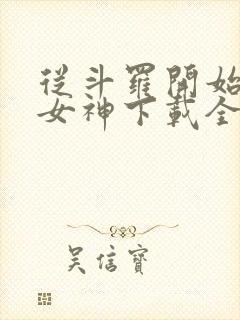 從斗羅開始
女神下載全
吳信寶